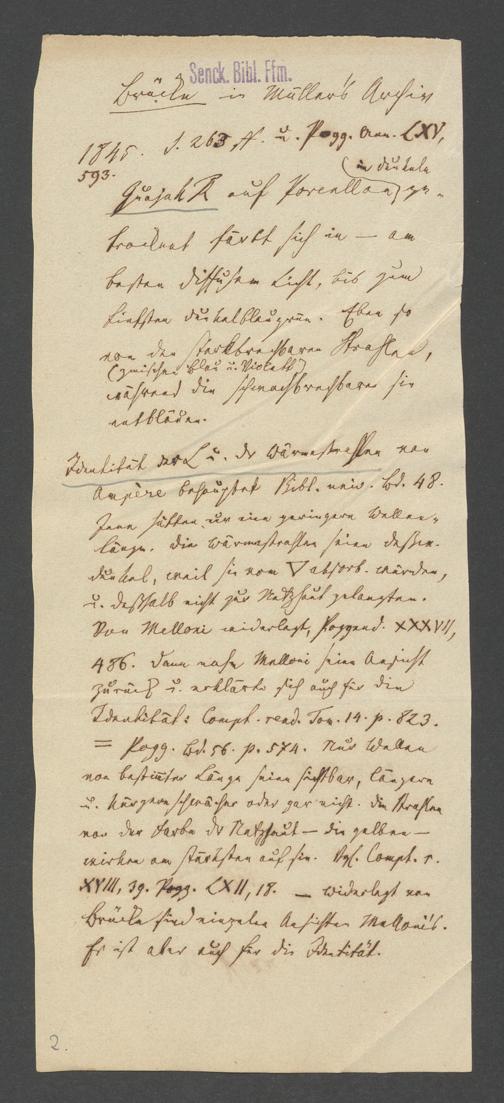 Senck. Bibl. Ffm.
Brücke in Müller's Archiv
1845. S. 263 ff. u. Pogg. Ann. LXV,
593.
(im Dunkeln
Guajak auf Porcellan) ge-
trocknet färbt sich in – am
besten diffusem Licht, bis zum
tiefsten dunkelblaugrün. Eben so
von den starkbrechbaren Strahlen,
(zwischen Blau u. Violett)
während die schwachbrechbaren sie
entbläuen.
Identität der L u. der Wärmestrahlen von
Ampère behauptet Bibl. univ. Bd. 48.
Jene hätten nur eine geringere Wellen-
länge. Die Wärmestrahlen seien deßw.
dunkel, weil sie vom ▽ absorb. würden,
u. deßhalb nicht zur Netzhaut gelangten.
Von Melloni widerlegt, Poggend. XXXVII,
486. Dann nahm Melloni seine Ansicht
zurück u. erklärte sich auch für die
Identität: Compt. rend. Tom. 14. p. 823.
= Pogg. Bd. 56. p. 574. Nur Wellen
von bestimter Länge seien sichtbar, längere
u. kürzere schwächer oder gar nicht. Die Strahlen
von der Farbe der Netzhaut – die gelben –
wirken am stärksten auf sie. Vgl. Compt. r.
XVIII, 39. Pogg. LXII, 18. – Widerlegt von
Brücke sind einzelne Ansichten Melloni's.
Er ist aber auch für die Identität.
2.